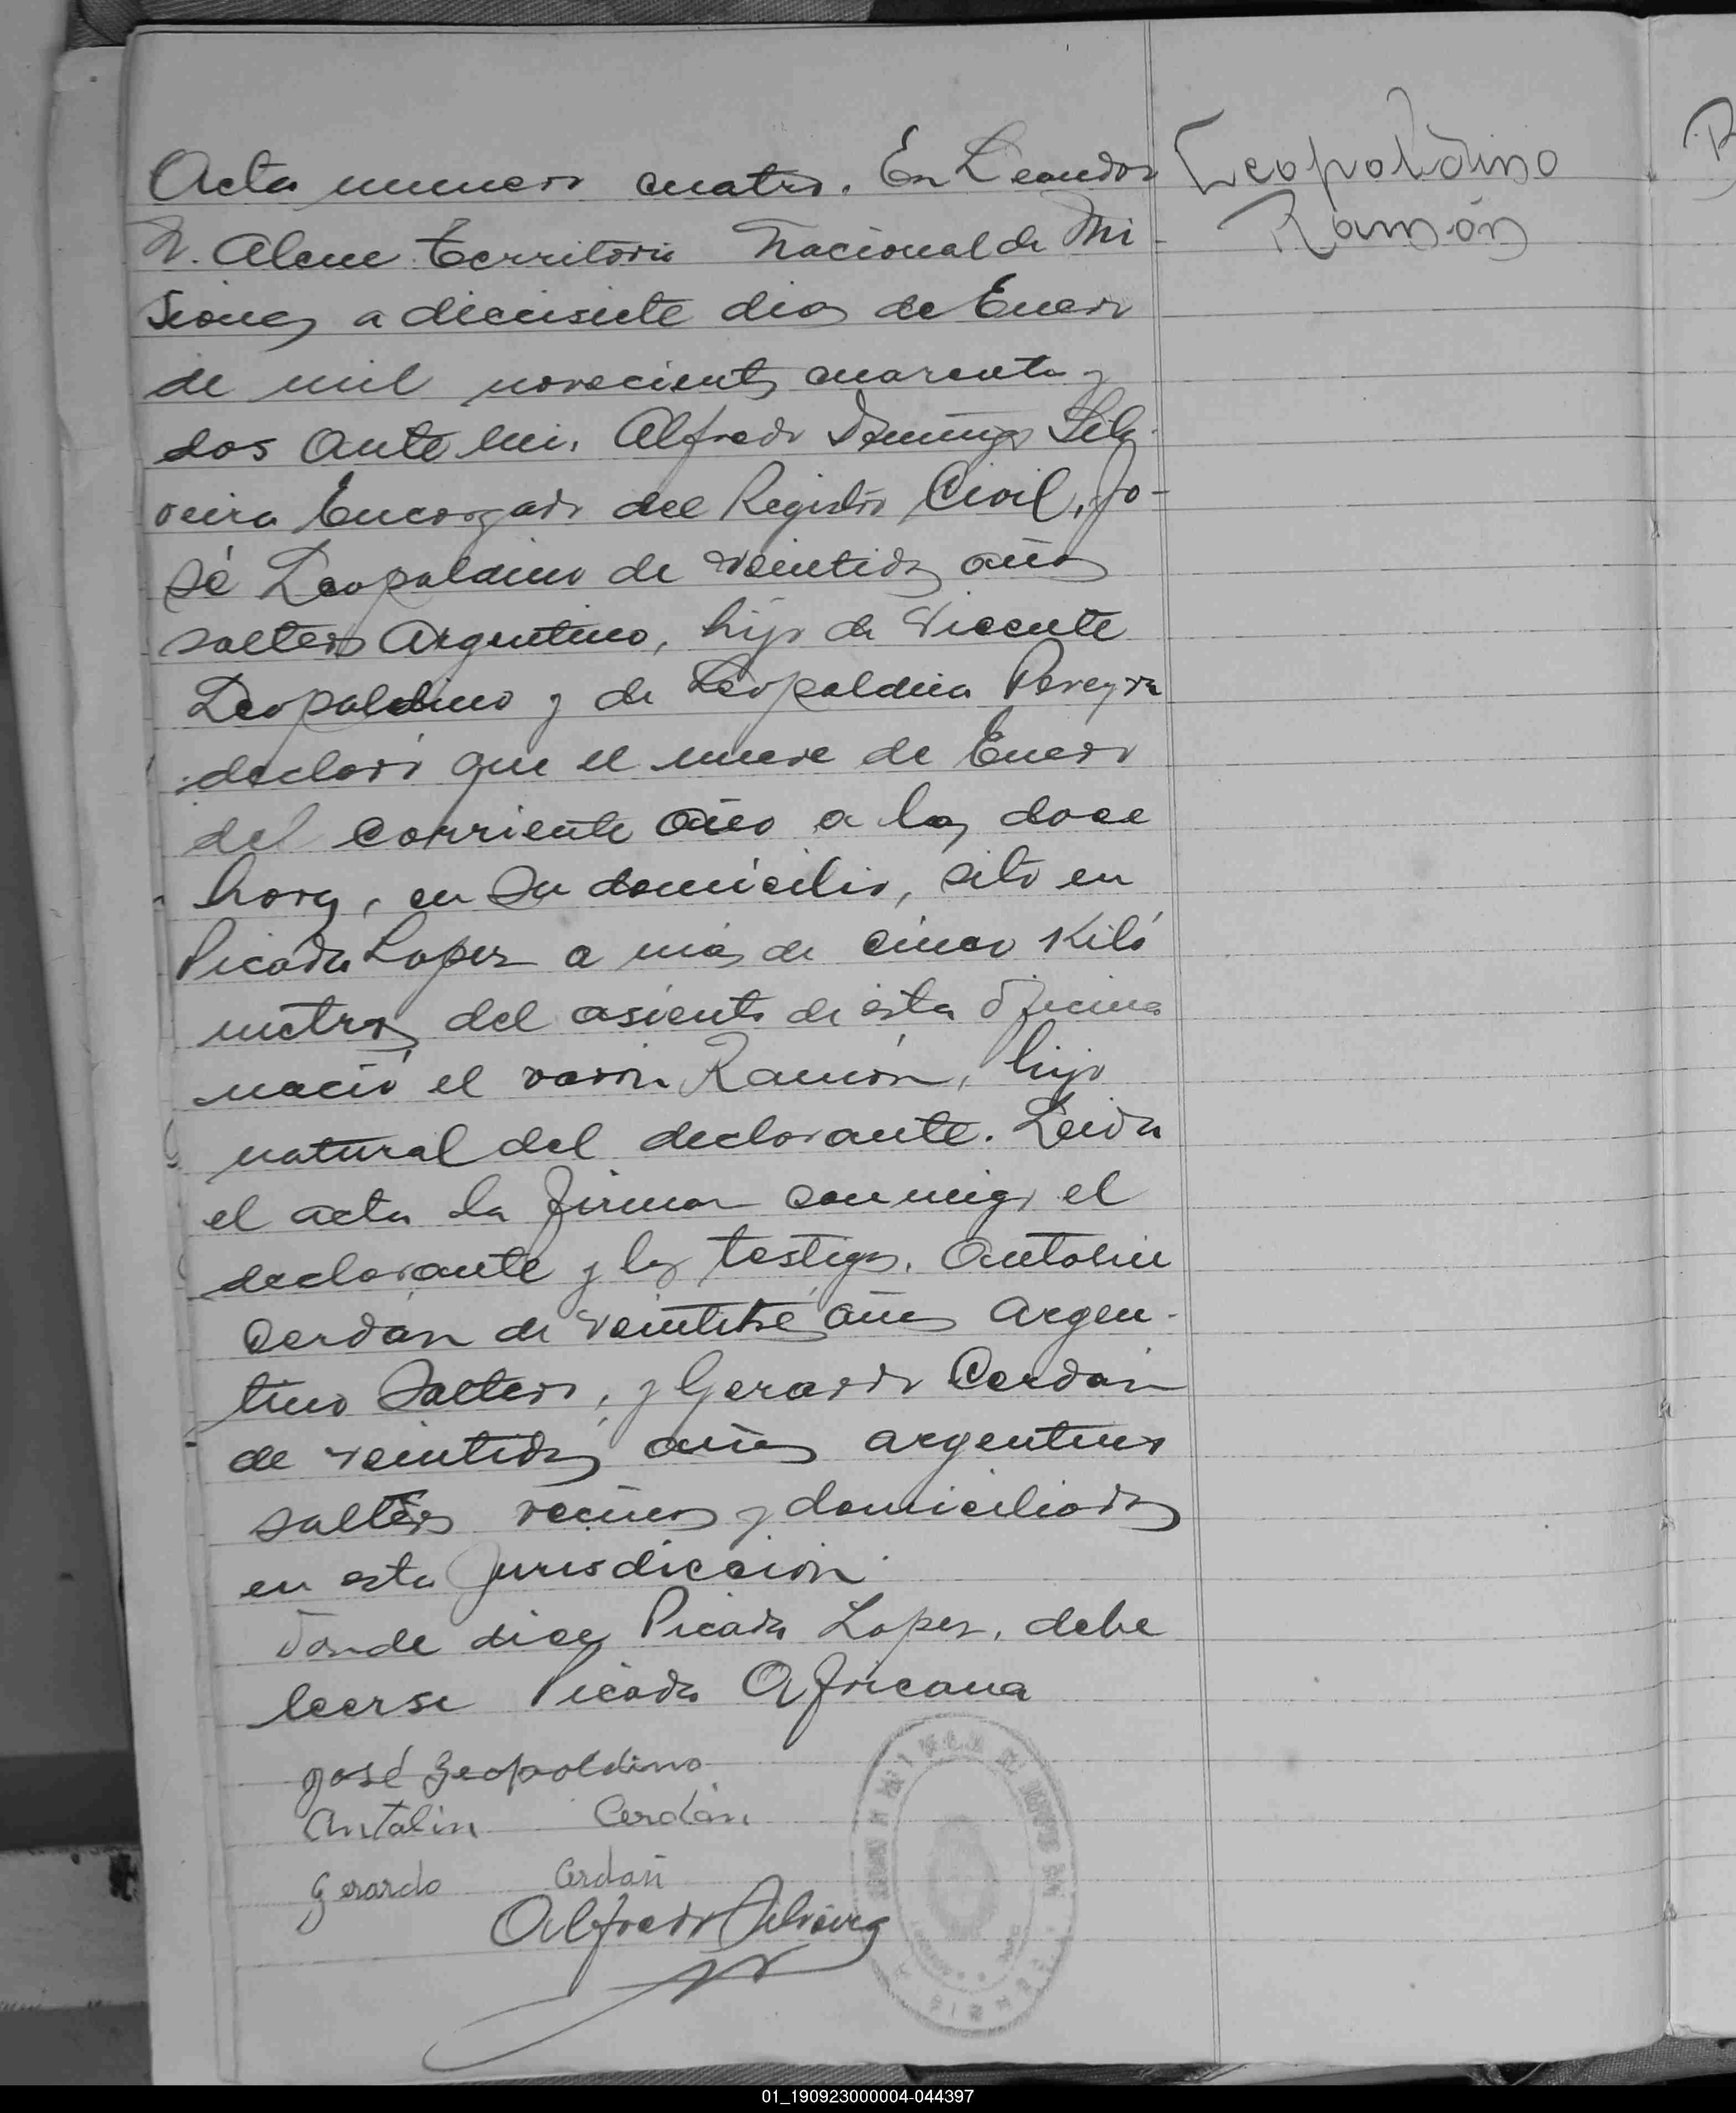 Acta numero cuatro. En Leandro
N. Alem territorio Nacional de Mi
siones a diecisiete dias de Enero
de mil novecientos cuarenta y
dos Ante mi, Alfredo Domingo Sil
veira Encargado del Registro Civil, Jo-
sé Leopoldino de veintidos años
soltero Argentino, hijo de Vicente
Leopoldino y de Leopoldina Pereyra
declaró que el nueve de Enero
del corriente año a las doce
horas, en su domicilio, sito en
Picada Lopez a más de cinco Kiló
metros del asiento de esta Oficina
nació el varon Ramón, hijo
natural del declarante. Leida
el acta la firman conmigo el
declarante y los testigos. Antolin
Cerdán de veintitrés años Argen-
tino Soltero, y Gerardo Cerdán
de veintidos años argentino
soltero vecinos y domiciliados
en esta Jurisdiccion
Donde dice Picada Lopez, debe
leerse Picada Africana
José Leopoldino
Antolin Cerdán
Gerardo Cerdán
Alfredo Silveira
Leopoldino
Ramón
01_190923000004-044397